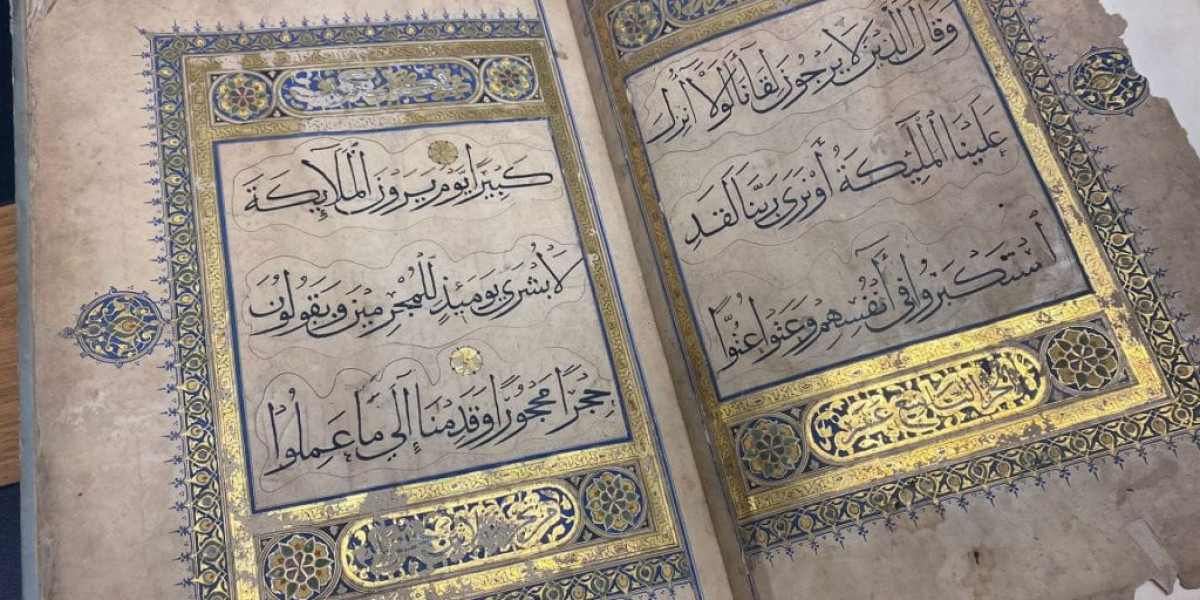 وَقَالَ الَّذِينَ لَا يَرْجُونَ لِقَاءَنَا لَوْلَا أُنْزِلَ
عَلَيْنَا الْمَلٰئِكَةُ أَوْ نَرَى رَبَّنَا لَقَدِ
اسْتَكْبَرُوا فِي أَنْفُسِهِمْ وَعَتَوْا عُتُوًّا
الجزء التاسع عشر
كَبِيرًا يَوْمَ يَرَوْنَ الْمَلَائِكَةَ
لَا بُشْرَى يَوْمَئِذٍ لِلْمُجْرِمِينَ وَيَقُولُونَ
حِجْرًا مَحْجُورًا وَقَدِمْنَا إِلَى مَا عَمِلُوا